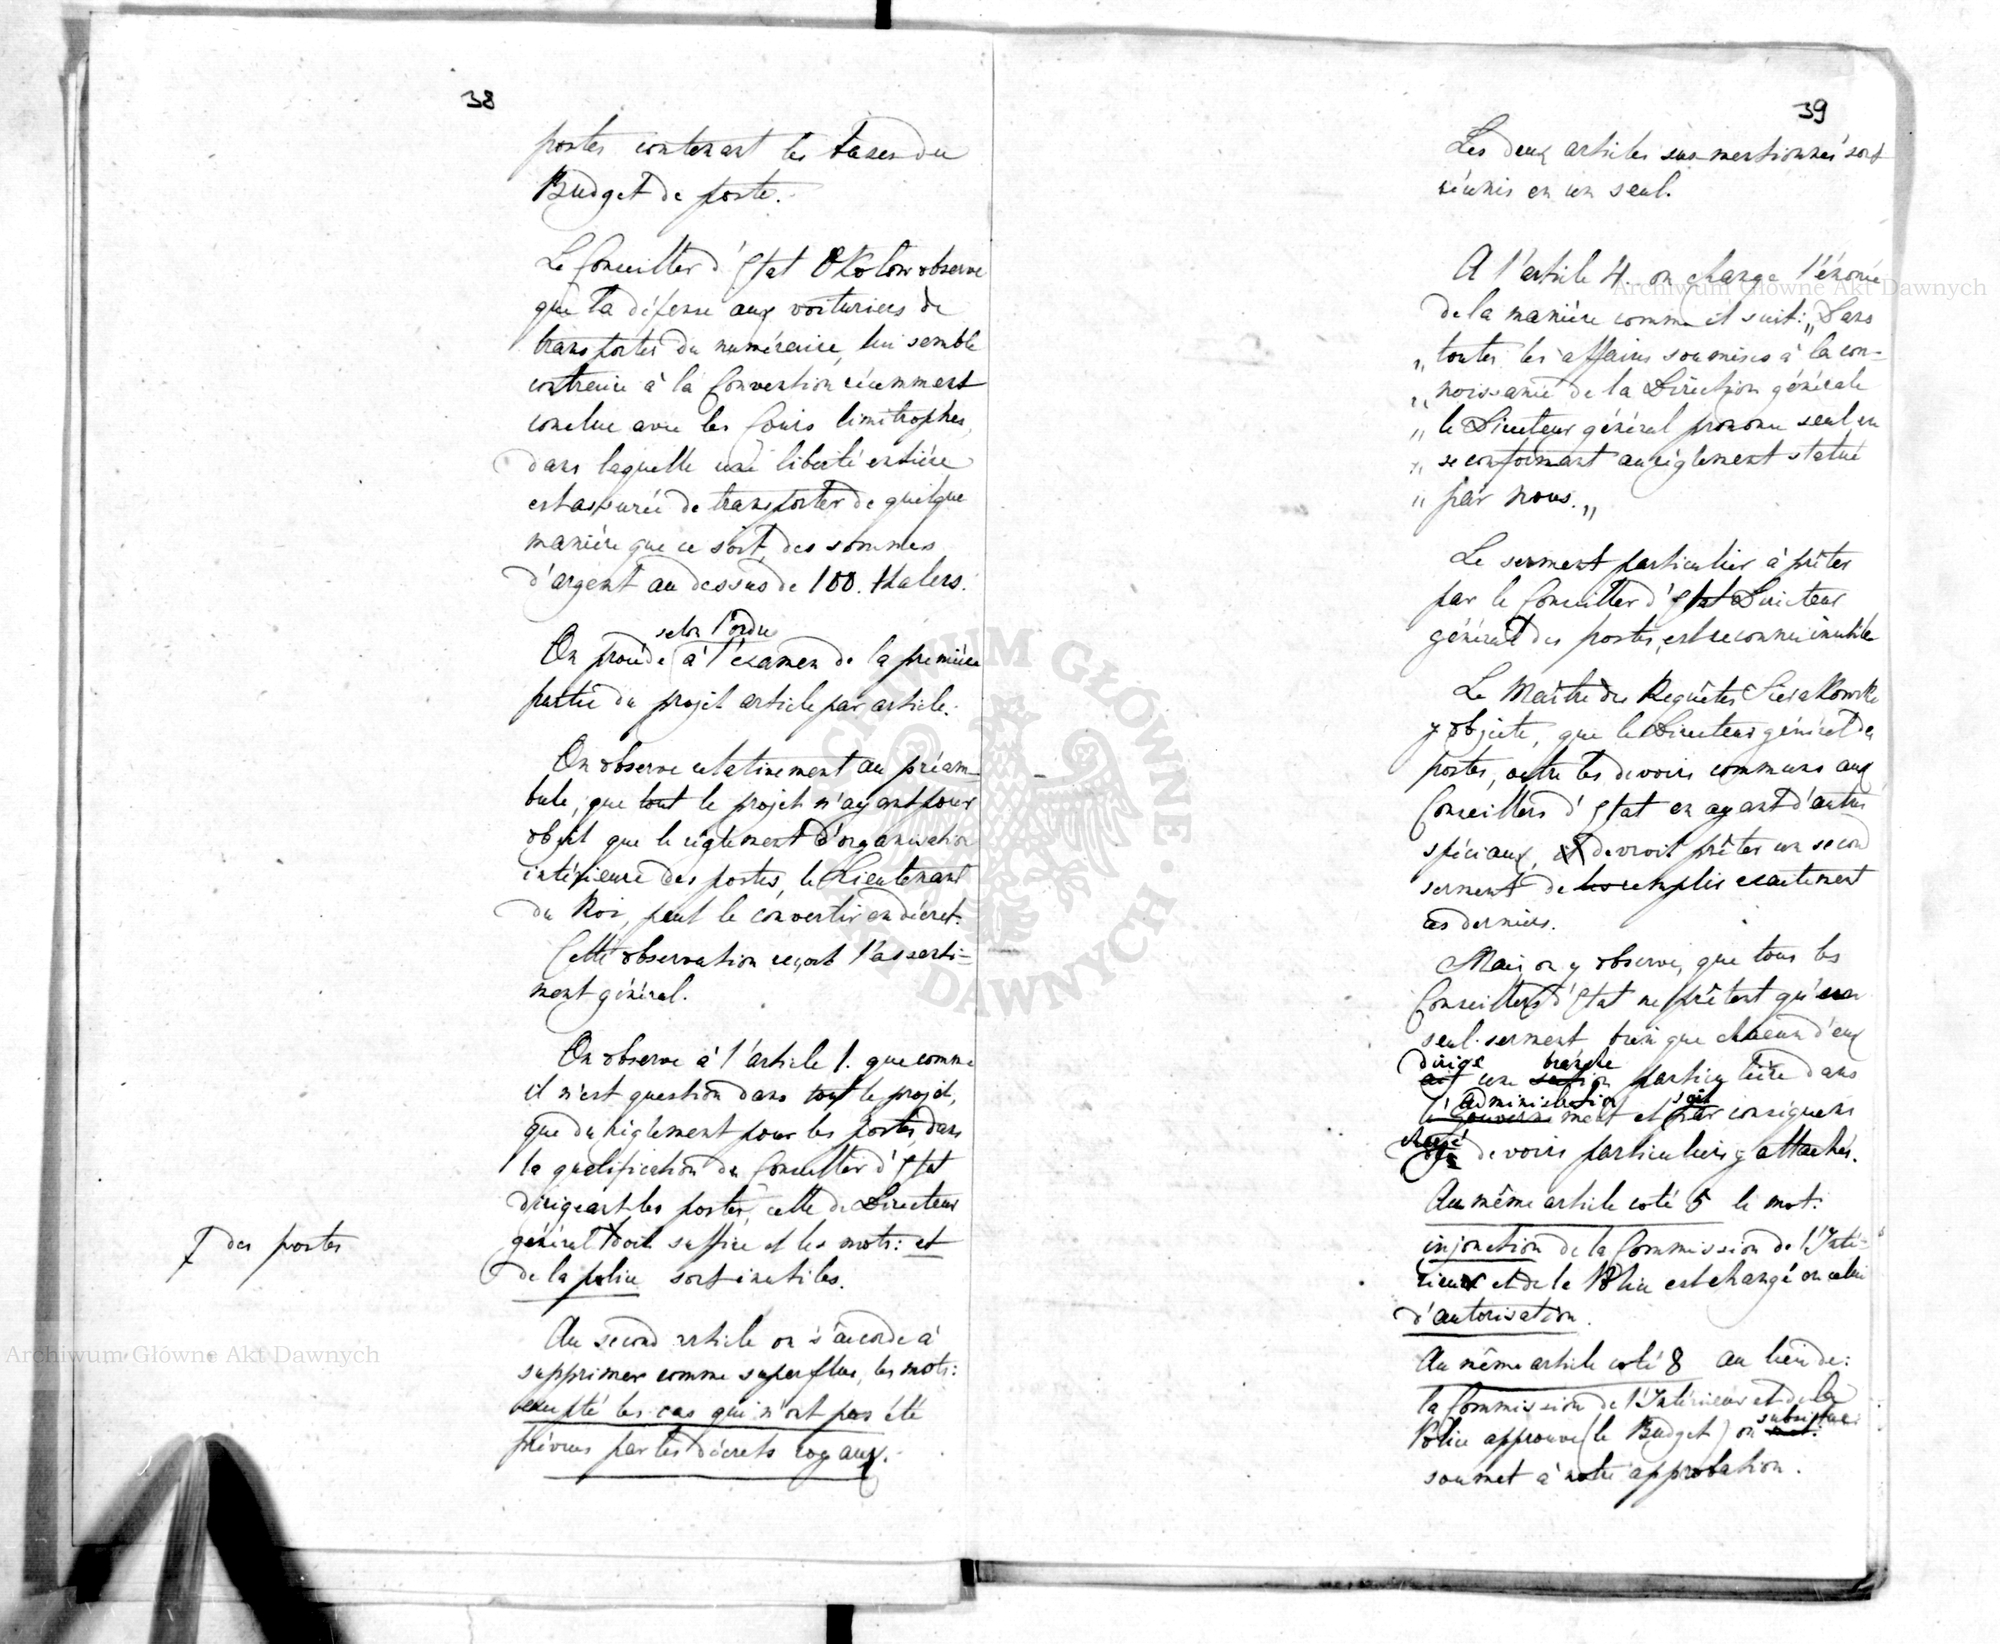 38
postes contenant les taxes du
Budget de poste.
Le Conseiller d'Etat Okolow observe
que la défense aux voituriers de
transporter du numéraire, lui semble
contraire à la Convention récemment
conclue avec les Cours limitrophes,
dans laquelle une liberté entière
est assurée de transporter de quelque
manière que ce soit, des sommes
d'argent au dessus de 100. thalers.
selon l'ordre
On procède à l'examen de la première
partie du projet article par article.
On observe relativement au préam-
bule, que tout le projet n'ayant pour
objet que le règlement d'organisation
intérieure des postes, le Lieutenant
du Roi, peut le convertir en décret.
Cette observation reçoit l'assenti=
ment général.
On observe à l'article 1. que comme
il n'est question dans tout le projet,
que du règlement pour les postes, dans
la qualification du Conseiller d'Etat
dirigeant les postes, celle de Directeur
général doit suffire et les mots: et
de la police sont inutiles.
des postes
Au second article on s'accorde à
supprimer comme superflus, les mots:
excepté les cas qui n'ont pas été
prévus par les décrets royaux.
39
Les deux articles sus-mentionnés sont
réunis en un seul.
A l'article 4. on change l'énoncé
de la manière comme il suit: „Dans
„ toutes les affaires soumises à la con=
„ noissance de la Direction générale
„ le Directeur général prononce seul en
„ se conformant au règlement statué
„ par nous.„
Le serment particulier à prêter
par le Conseiller d'Etat Directeur
général des postes, est reconnu inutile
Le Maître des Requêtes Sierakowski
y objecte, que le Directeur général des
postes, outre les devoirs communs aux
Conseillers d'Etat en ayant d'autres
spéciaux, il devroit prêter un second
serment de les remplir exactement
ces derniers.
Mais on y observe, que tous les
Conseillers d'Etat ne prêtent qu'un
seul serment bien que chacun d'eux
dirige branche
ait une section particulière dans
administration soit
le gouvernement et par conséquent
chargé
des devoirs particuliers y attachés.
Au même article coté 5 le mot:
injonction de la Commission de l'Inté=
rieur et de la Police est changé en celui
d'autorisation.
Au même article coté 8 au lieu de:
la Commission de l'Intérieur et de la
substitue:
Police approuve (le Budget) on met:
soumet à notre approbation.
Archiwum Główne Akt Dawnych
Archiwum Główne Akt Dawnych
ARCHIWUM GŁÓWNE · AKT DAWNYCH ·